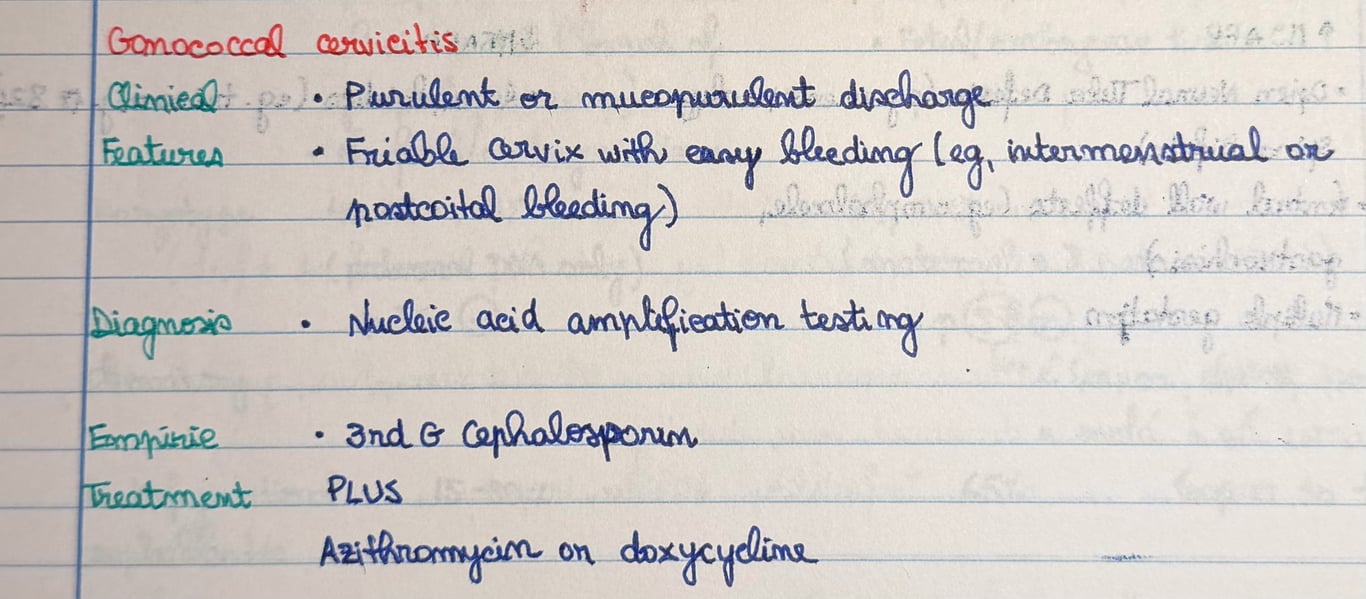 Gonococcal cervicitis
Clinical • Purulent or mucopurulent discharge
Features • Friable cervix with easy bleeding (eg, intermenstrual or
postcoital bleeding)
Diagnosis • Nucleic acid amplification testing
Empiric • 3nd G Cephalosporin
Treatment PLUS
Azithromycin or doxycycline